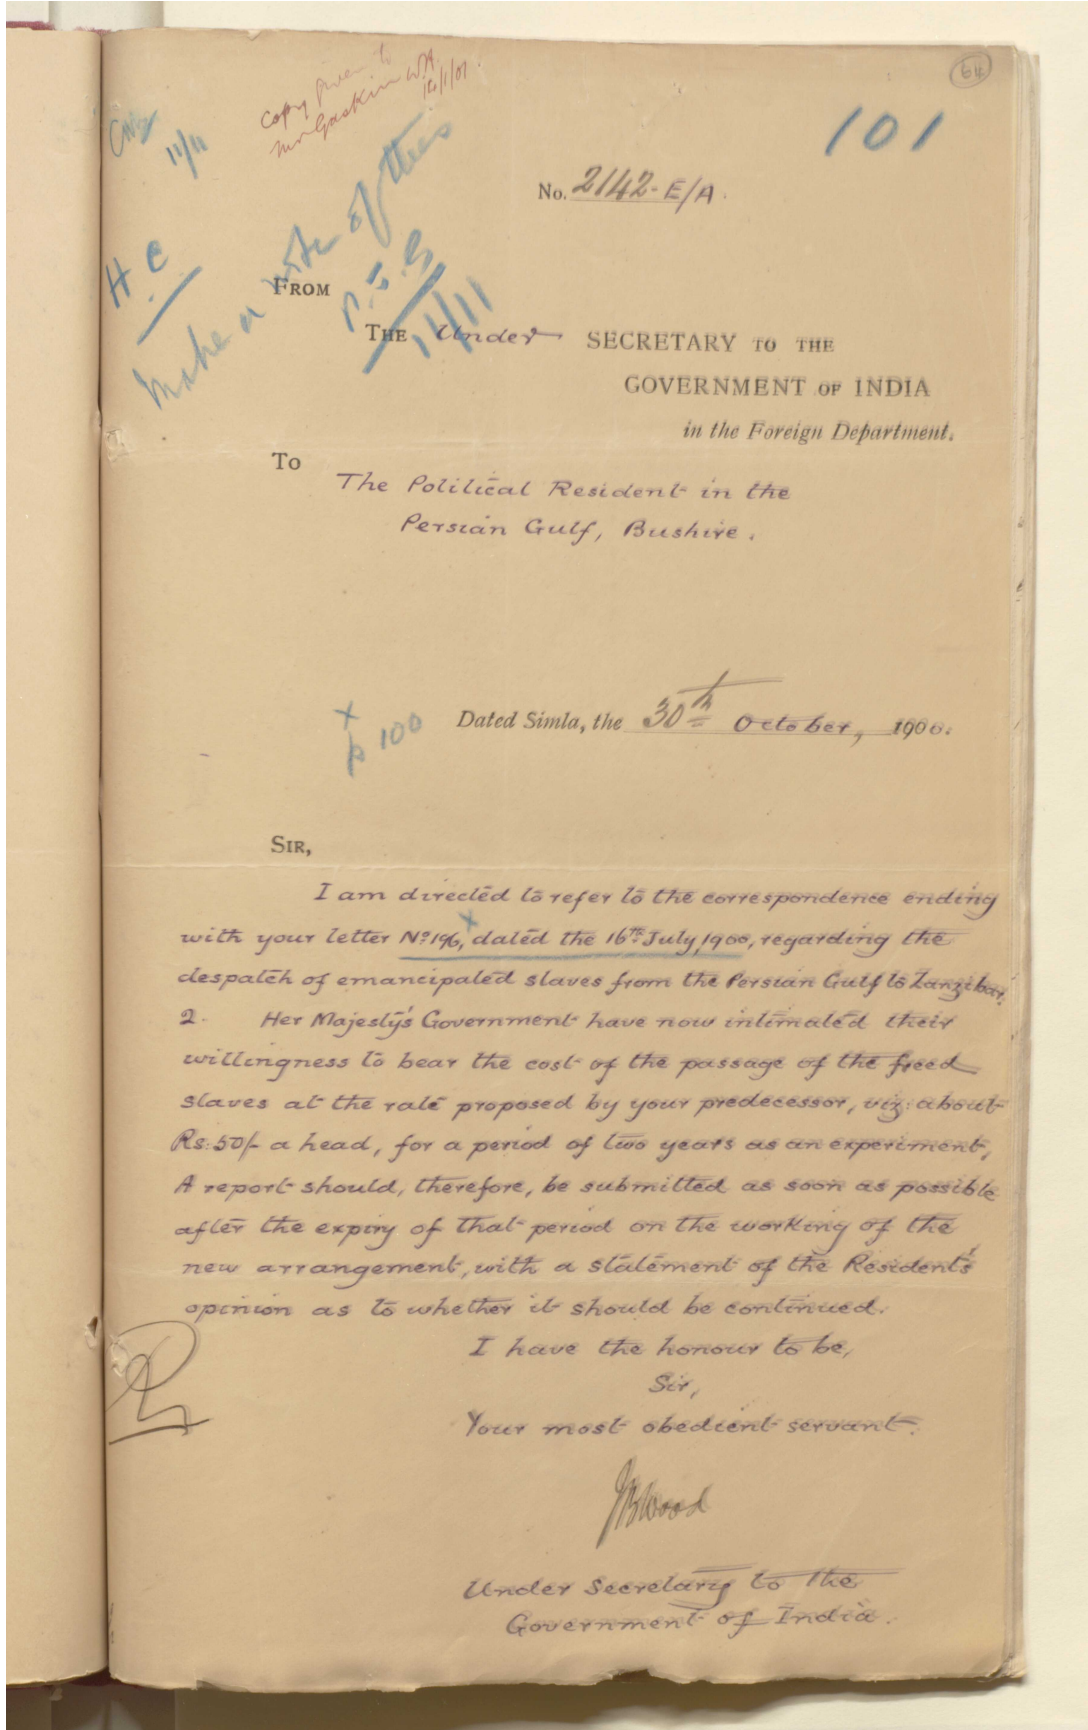 64
101
copy given to
Mr Gaskin
16/1/01
11/11
H C
Make a note of this
11/11
No. 2142-E/A.
FROM
THE Under SECRETARY TO THE
GOVERNMENT OF INDIA
in the Foreign Department.
To
The Political Resident in the
Persian Gulf, Bushire.
x
p 100
Dated Simla, the 30th October, 1900.
SIR,
I am directed to refer to the correspondence ending
with your letter No. 196, x dated the 16th July, 1900, regarding the
despatch of emancipated slaves from the Persian Gulf to Zanzibar.
2. Her Majesty's Government have now intimated their
willingness to bear the cost of the passage of the freed
slaves at the rate proposed by your predecessor, viz: about
Rs. 50/- a head, for a period of two years as an experiment,
A report should, therefore, be submitted as soon as possible
after the expiry of that period on the working of the
new arrangement, with a statement of the Resident's
opinion as to whether it should be continued.
I have the honour to be,
Sir,
Your most obedient servant.
JBWood
Under Secretary to the
Government of India.